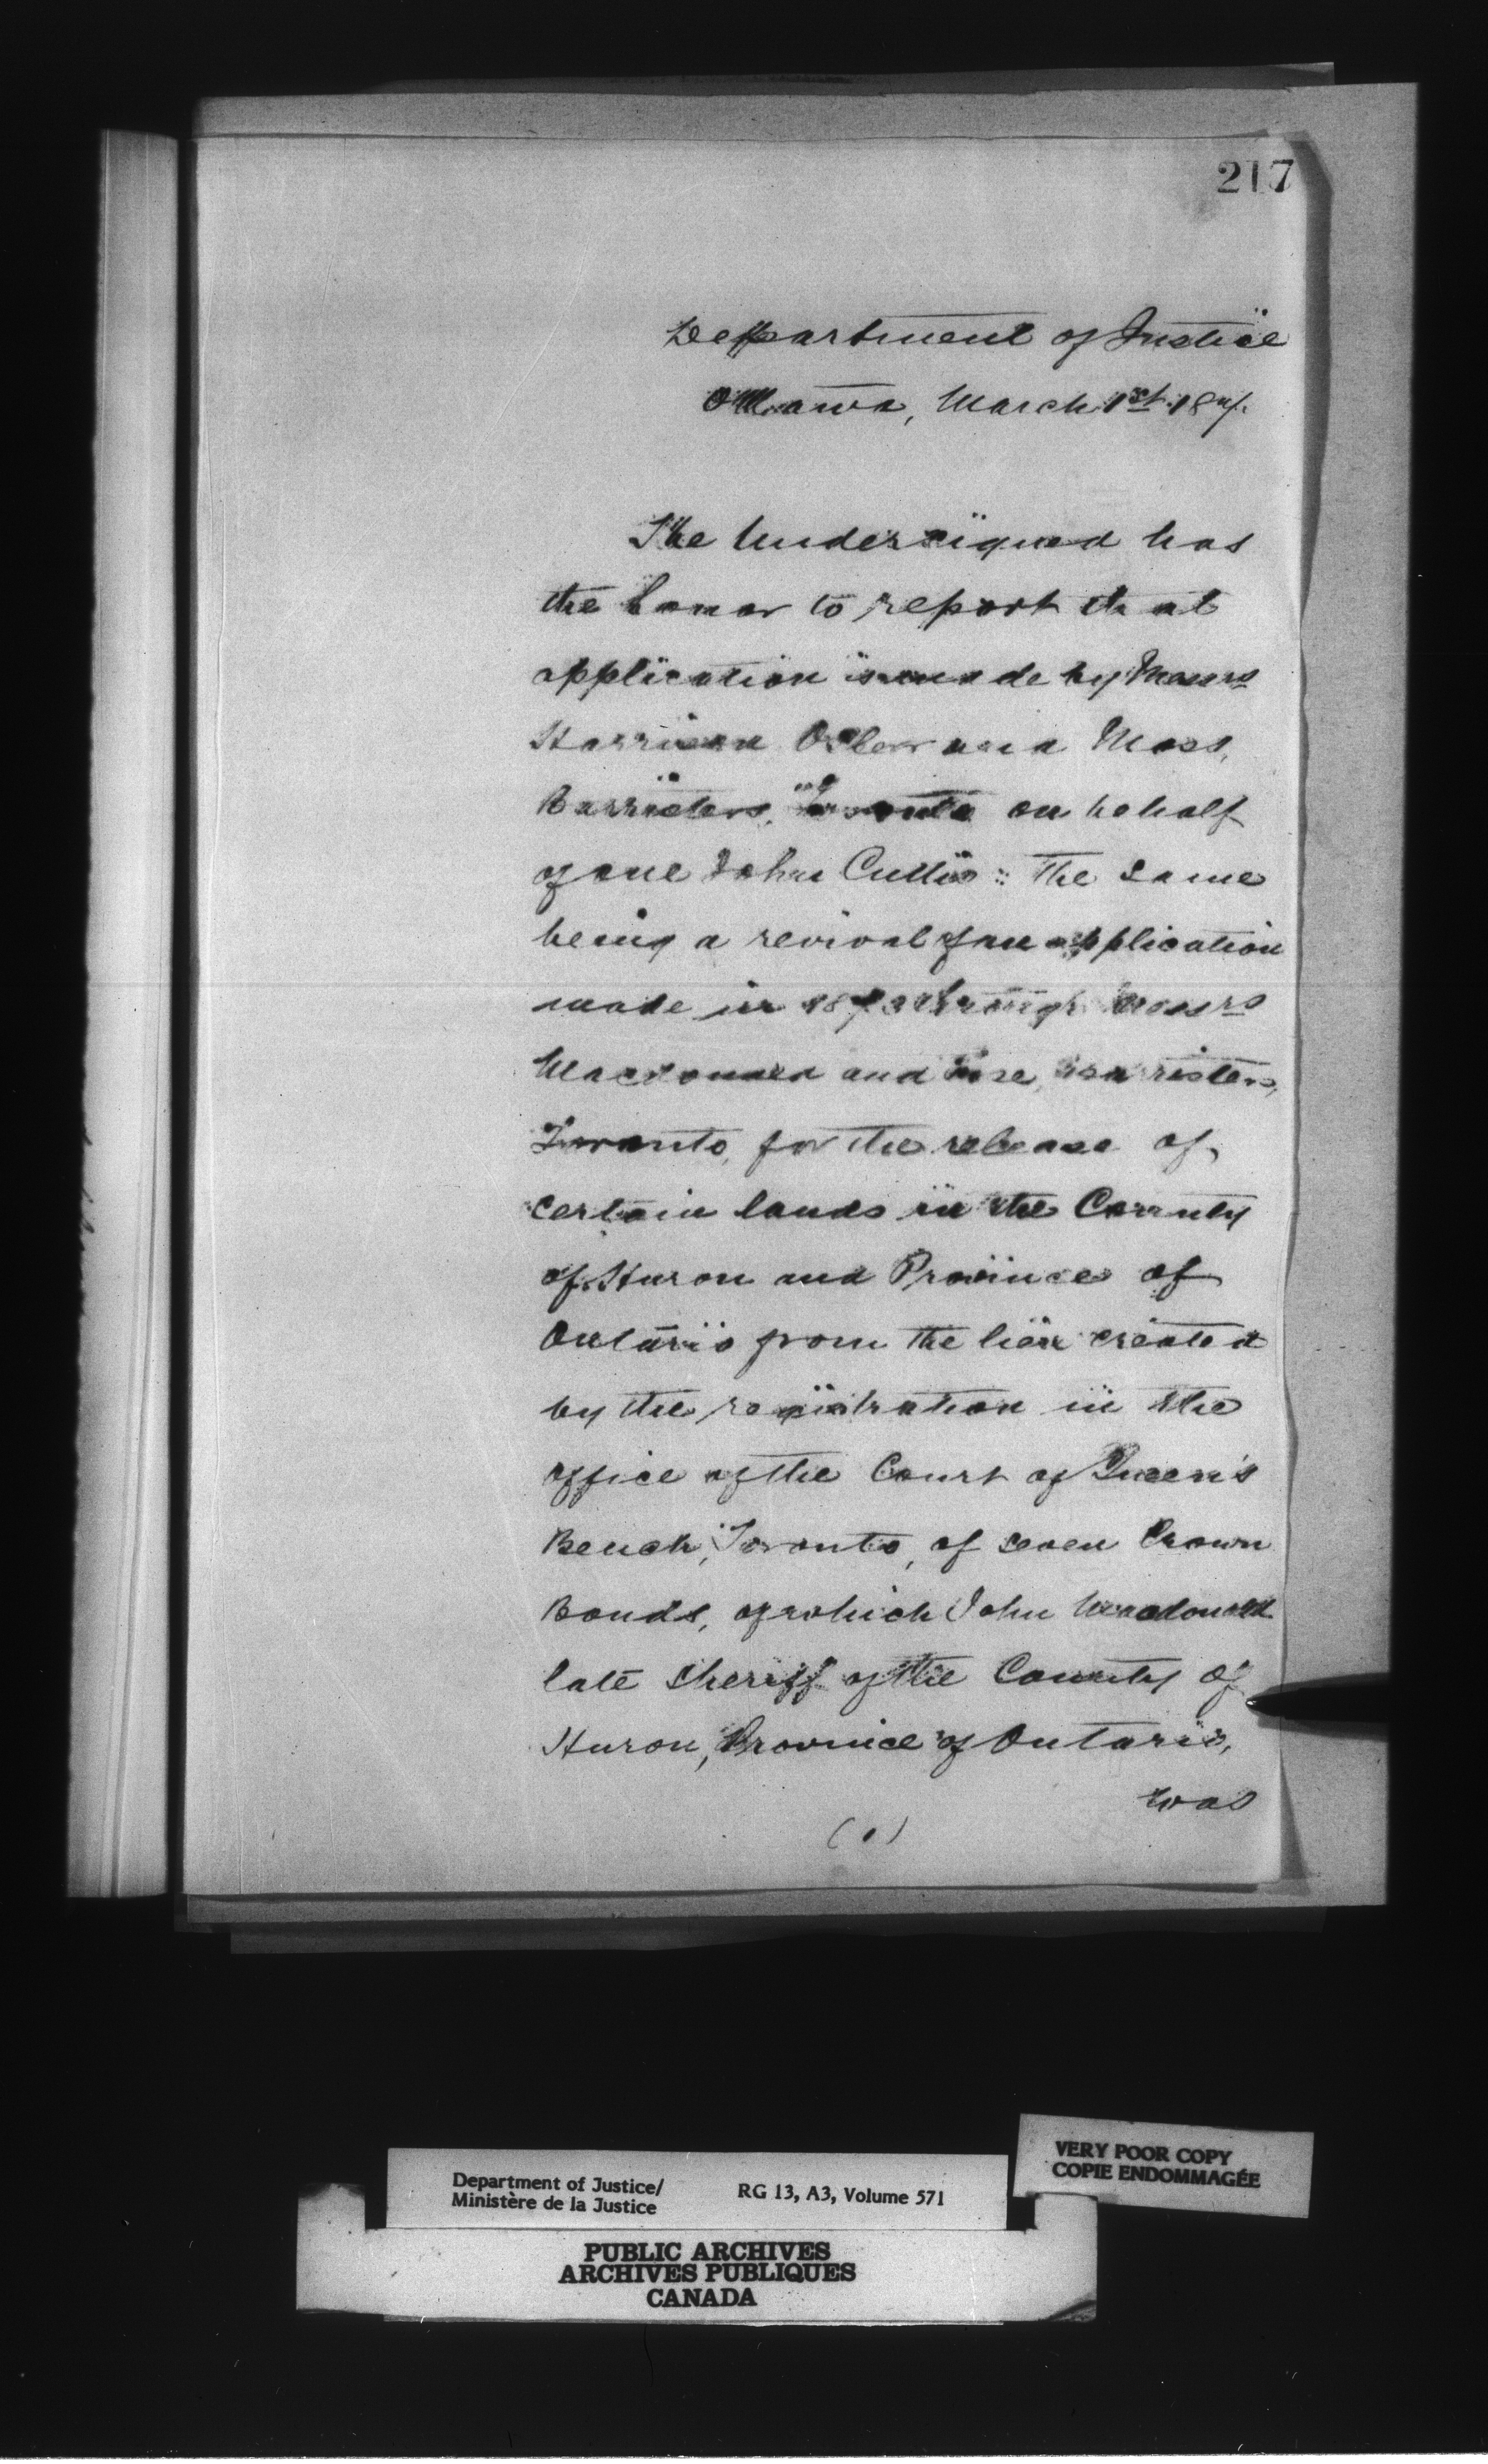 217
Department of Justice
Ottawa, March 1st 187
The Undersigned has
the honor to report that
application is made by Messrs
Harrison Osler and Moss,
Barristers, Toronto on behalf
of one John Cullis: The same
being a revival of an application
made in 1873 through Messrs
Macdonald and barristers,
Toronto, for the release of
certain lands in the County
of Huron and Province of
Ontario from the lien created
by the registration in the
office of the Court of Queen's
Bench, Toronto, of seven Crown
Bonds, of which John Macdonald
late Sheriff of the County of
Huron, Province of Ontario,
was
(1)
VERY POOR COPY
COPIE ENDOMMAGÉE
Department of Justice/
Ministère de la Justice
RG 13, A3, Volume 571
PUBLIC ARCHIVES
ARCHIVES PUBLIQUES
CANADA